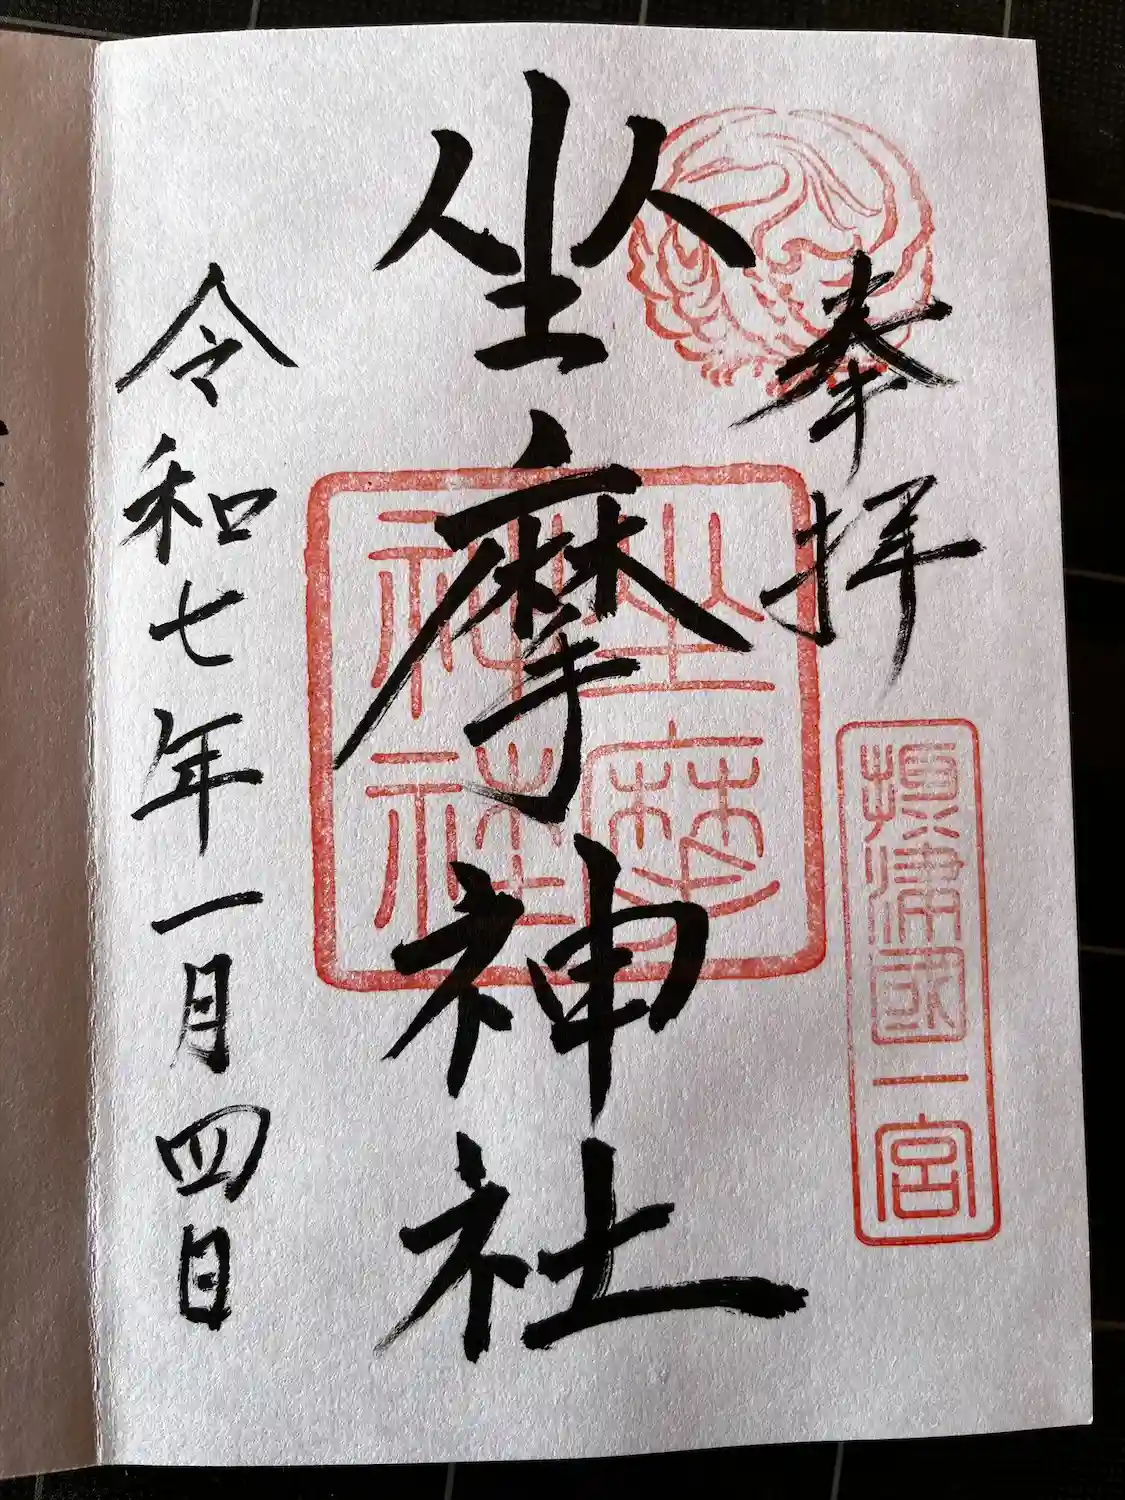 奉拝
摂津國一宮
坐摩神社
坐摩
神社
令和七年一月四日